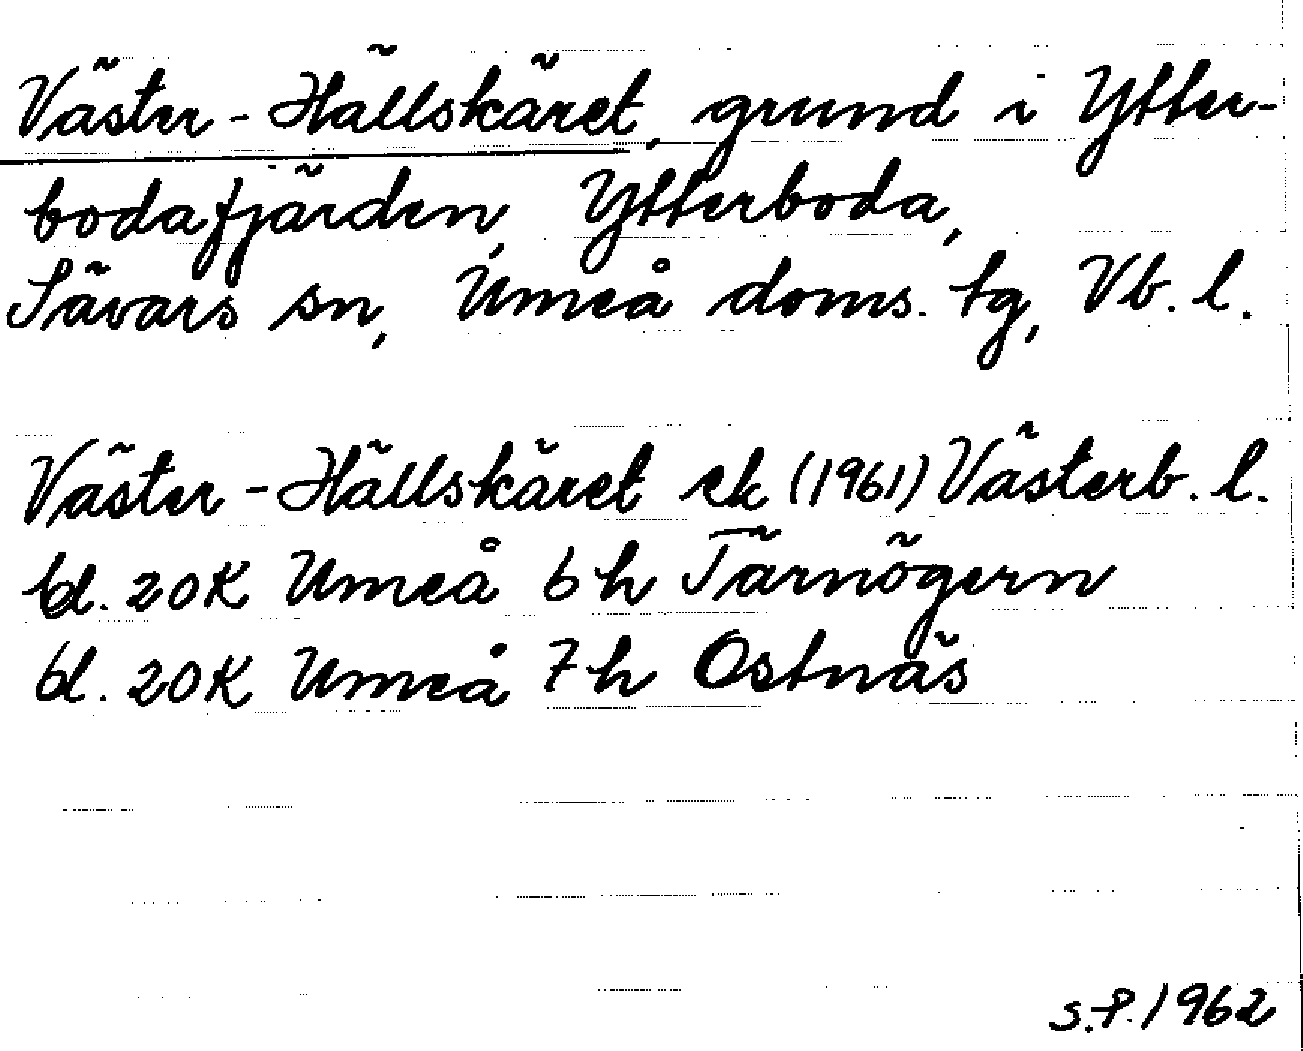 Väster-Hällskäret, grund i Ytter-
bodafjärden, Ytterboda,
Sävars sn, Umeå doms. tg, Vb. l.
Väster-Hällskäret ek (1961) Västerb. l.
bl. 20K Umeå 6h Tärnögern
bl. 20K Umeå 7h Ostnäs
S.P. 1962